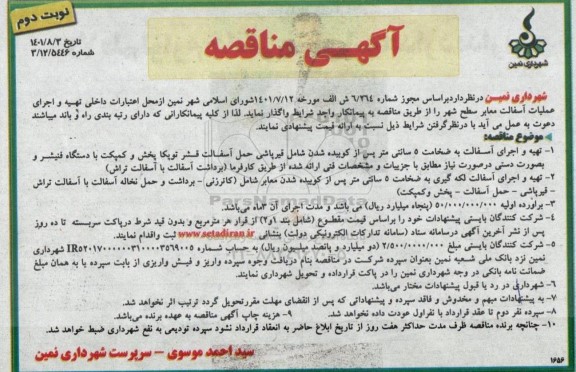 نوبت دوم
آگهـی مناقصه
شهرداری نمین
تاریخ ۱۴۰۱/۸/۳
شماره ۳/۱۲/۵۴۴۶
شهرداری نمیـن درنظرداردبراساس مجوز شماره ۶/۳۶۴ ش الف مورخه ۱۴۰۱/۷/۱۲شورای اسلامی شهر نمین ازمحل اعتبارات داخلی تهیـه و اجرای
عملیات آسفالت معابر سطح شهر را از طریق مناقصه به پیمانکار واجد شرایط واگذار نماید. لذا از کلیه پیمانکارانی که دارای رتبه بندی راه و باند میباشند
دعوت به عمل می آید با درنظرگرفتن شرایط ذیل نسبت به ارائه قیمت پیشنهادی نمایند.
موضوع مناقصه:
۱- تهیه و اجرای آسـفالت به ضخامت ۵ سانتی متر پس از کوبیده شدن شامل قیرپاشی حمل آسفـالت قشـر توپکا پخش و کمپکت با دستگاه فنیشـر و
بصورت دستی درصورت نیاز مطابق با جزییات و مشخصات فنی ارائه شده از طریق کارفرما (برداشت آسفالت با آسفالت تراش)
۲- تهیه و اجرای آسفالت لکه گیری به ضخامت ۵ سانتی متر پس از کوبیده شدن معابر شامل (کاترزنی- برداشت و حمل نخاله آسفالت با آسفالت تراش
- قیرپاشی - حمل آسفالت - پخش وکمپکت)
۳- برآورد اولیه ۵۰/۰۰۰/۰۰۰/۰۰۰ (پنجاه میلیارد ریال) می باشد و مدت اجرای آن ۳ماه می‌باشد.
۴- شرکت کنندگان بایستی پیشنهادات خود را براساس قیمت مقطـوع (شامل بند ۱و۲) از قرار هر مترمربع و بدون قید شرط درپاکت سربسته تا ده روز
پس از نشر آخرین آگهی درسامانه ستاد (سامانه تدارکات الکترونیکی دولت) بنشانی www.setadiran.ir ثبت واقدام نمایند.
۵- شرکت کنندگان بایستی مبلغ ۲/۵۰۰/۰۰۰/۰۰۰ (دو میلیارد و پانصد میلیون ریال) به حساب شماره شهرداری
نمین نزد بانک ملی شـعبه نمین بعنوان سپرده شرکت در مناقصه بنام دریافت وجوه سپرده واریز و فیش واریزی از بابت سپرده یا به همان مبلغ
ضمانت نامه بانکی در وجه شهرداری نمین را در پاکت قرارداده و تحویل شهرداری نمایند.
۶- شهرداری در رد یا قبول پیشنهادات مختار می‌باشد.
۷- به پیشنهادات مبهم و مخدوش و فاقد سپرده و پیشنهاداتی که پس از انقضای مهلت مقررتحویل گردد ترتیب اثر نخواهد شد.
۸- سپرده نفر دوم تا عقد قرارداد با نفراول عودت داده نخواهد شد. ۹- هزینه چاپ آگهی مناقصه به عهده برنده می‌باشد.
۱۰- چنانچه برنده مناقصه ظرف مدت حداکثر هفت روز از تاریخ ابلاغ حاضر به انعقاد قرارداد نشود سپرده تودیعی به نفع شهرداری ضبط خواهد شد.
سید احمد موسوی – سرپرست شهرداری نمین
۱۶۵۶